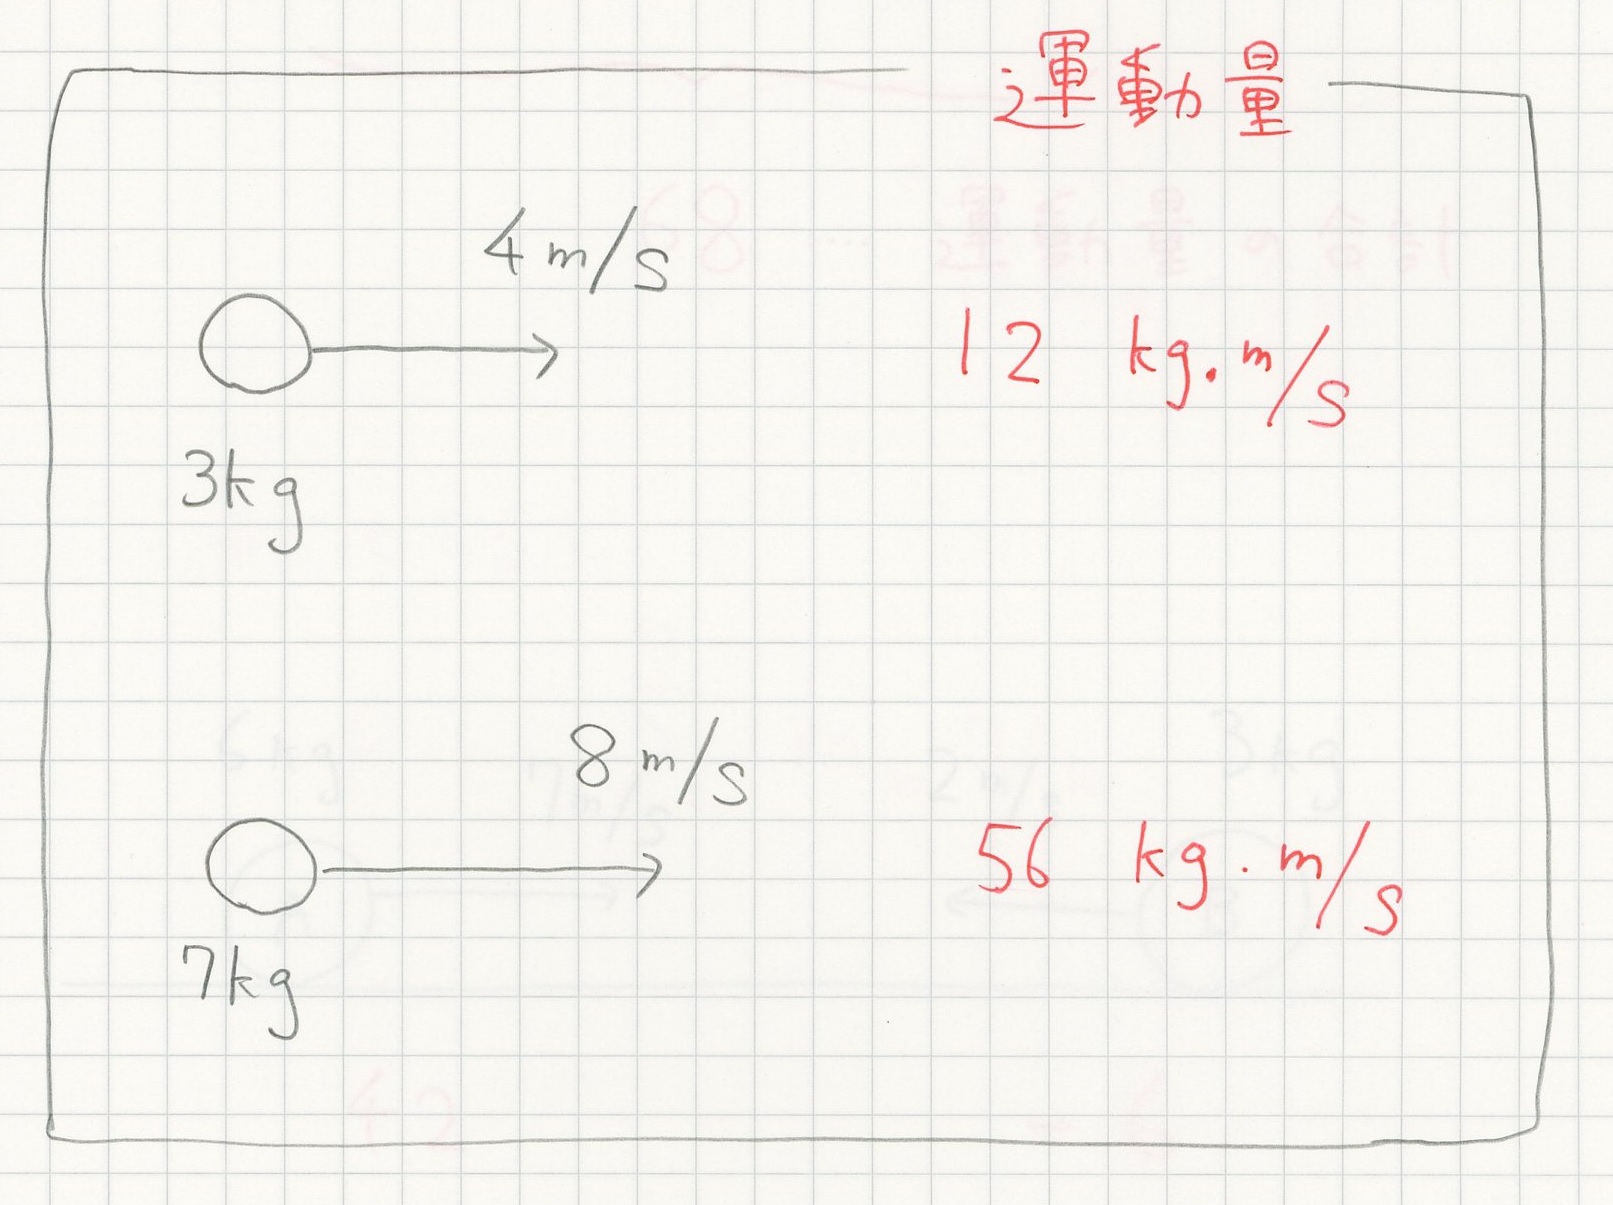 運動量
4m/s
12 kg.m/s
3kg
8m/s
56 kg.m/s
7kg